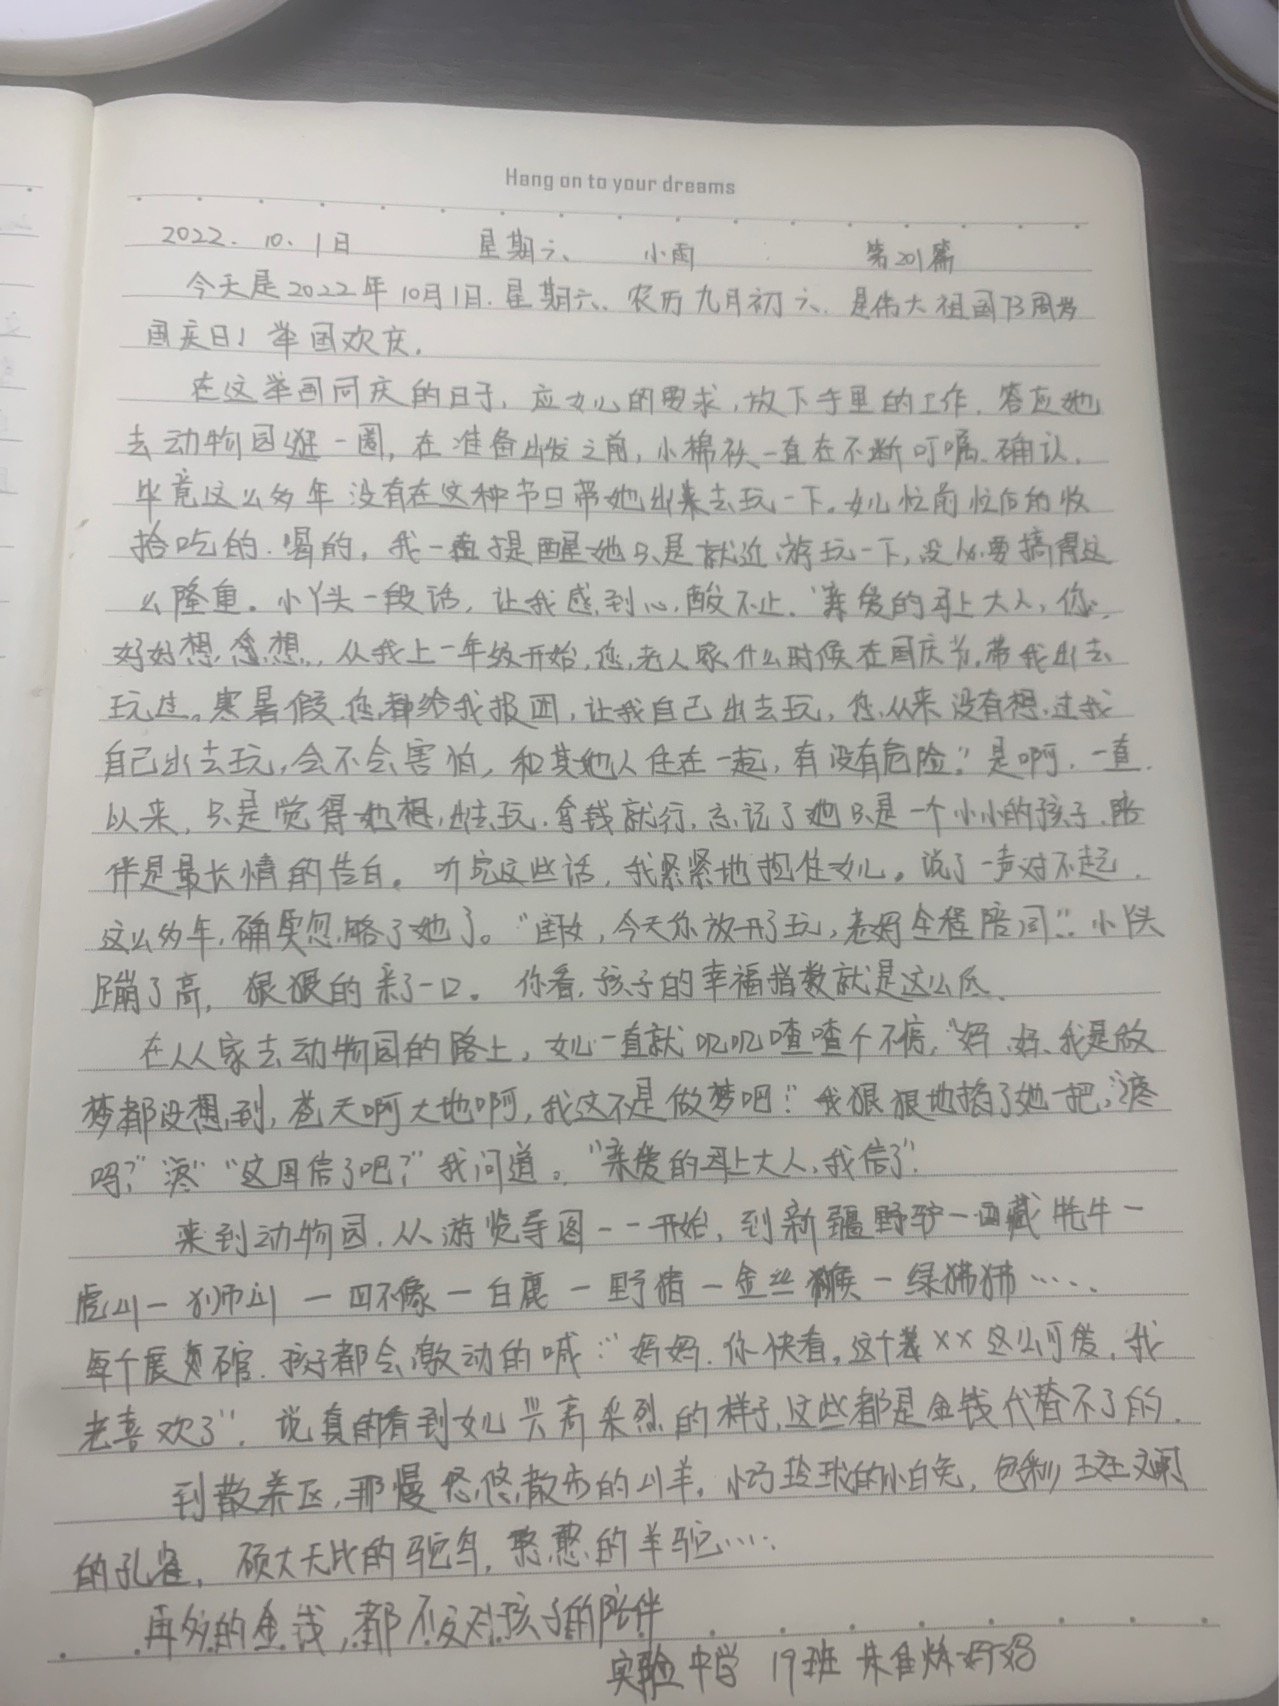 Hang on to your dreams
2022.10.1日 星期六 小雨 第201篇
今天是2022年10月1日.星期六、农历九月初六.是伟大祖国73周岁
国庆日!举国欢庆.
在这举国同庆的日子,应女儿的要求,放下手里的工作.答应她
去动物园逛一圈,在准备出发之前,小棉袄一直在不断叮嘱、确认.
毕竟这么多年没有在这种节日带她出来去玩一下。女儿忙前忙后的收
拾吃的.喝的,我一直提醒她只是就近游玩一下,没必要搞得这
么隆重。小丫头一段话,让我感到心酸不止.“亲爱的母上大人,您
好好想想,从我上一年级开始,您老人家什么时候在国庆节,带我出去
玩过。寒暑假您都给我报团,让我自己出去玩,您从来没有想过我
自己出去玩,会不会害怕,和其她人住在一起,有没有危险”是啊,一直
以来,只是觉得她想出去玩.拿钱就行,忘记了她只是一个小小的孩子.陪
伴是最长情的告白。听完这些话,我紧紧地抱住女儿。说了一声对不起.
这么多年,确实忽略了她了。“闺女,今天你放开了玩,老妈全程陪同”小丫头
蹦了高,狠狠的亲了一口。你看,孩子的幸福指数就是这么低.
在从家去动物园的路上,女儿一直就叽叽喳喳个不停,“妈妈、我是做
梦都没想到,苍天啊大地啊,我这不是做梦吧”我狠狠地掐了她一把,“疼
吗?”“疼”“这回信了吧?”我问道。“亲爱的母上大人,我信了”.
来到动物园.从游览导图一一开始,到新疆野驴—西藏牦牛—
虎山—狮山—四不像—白鹿—野猪—金丝猴—绿狒狒……
每个展馆.孩子都会激动的喊:“妈妈.你快看,这个××这么可爱,我
老喜欢了”.说真的看到女儿兴高采烈的样子,这些都是金钱代替不了的.
到散养区,那慢悠悠散步的山羊,小巧玲珑的小白兔,色彩斑斓
的孔雀,硕大无比的鸵鸟,憨憨的羊驼….
再多的金钱,都不及对孩子的陪伴
实验中学 19班 朱佳 妈妈